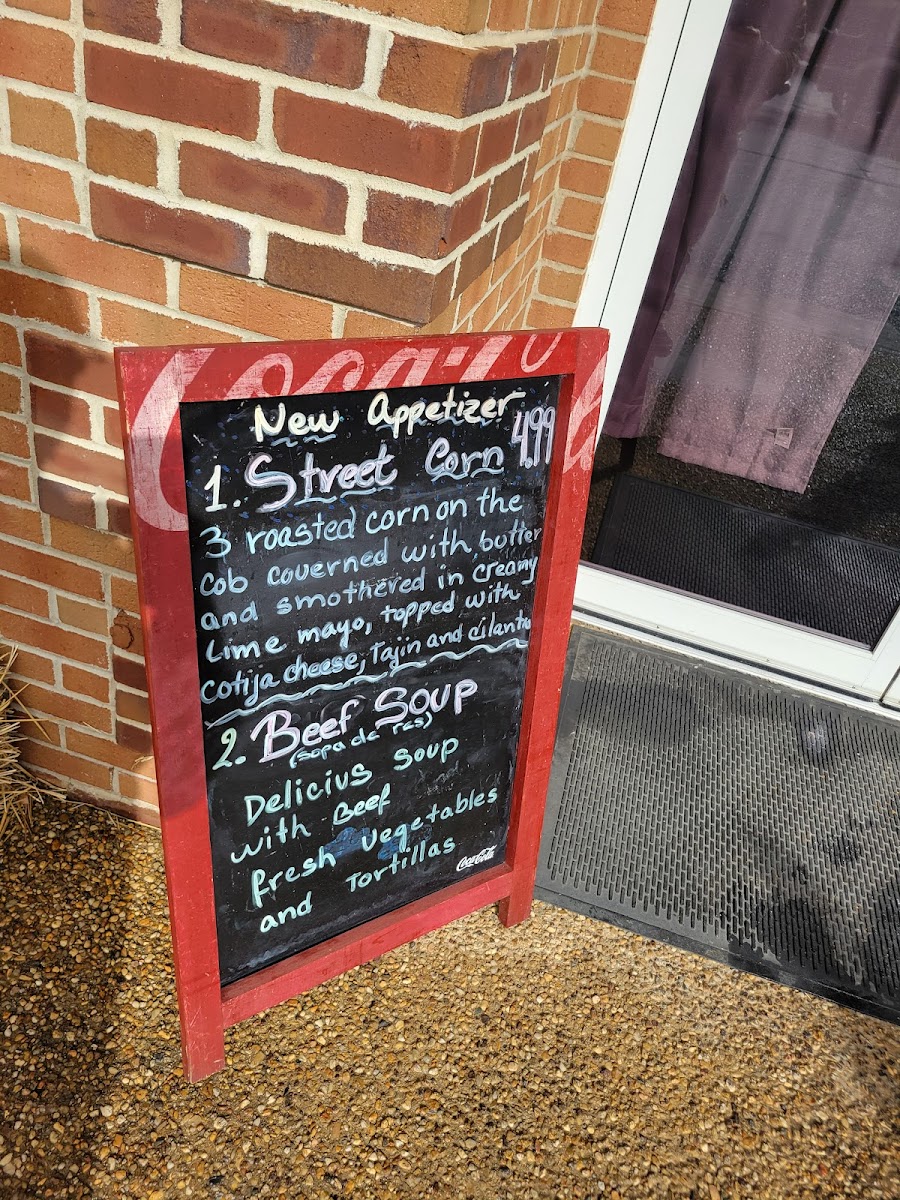 Coca-Cola
New Appetizer
1. Street Corn 4.99
3 roasted corn on the
cob couerned with butter
and smothered in creamy
Lime mayo, topped with
Cotija cheese, Tajin and cilantro
2. Beef Soup
(sopa de res)
Delicius Soup
with Beef
fresh vegetables
and Tortillas
Coca-Cola